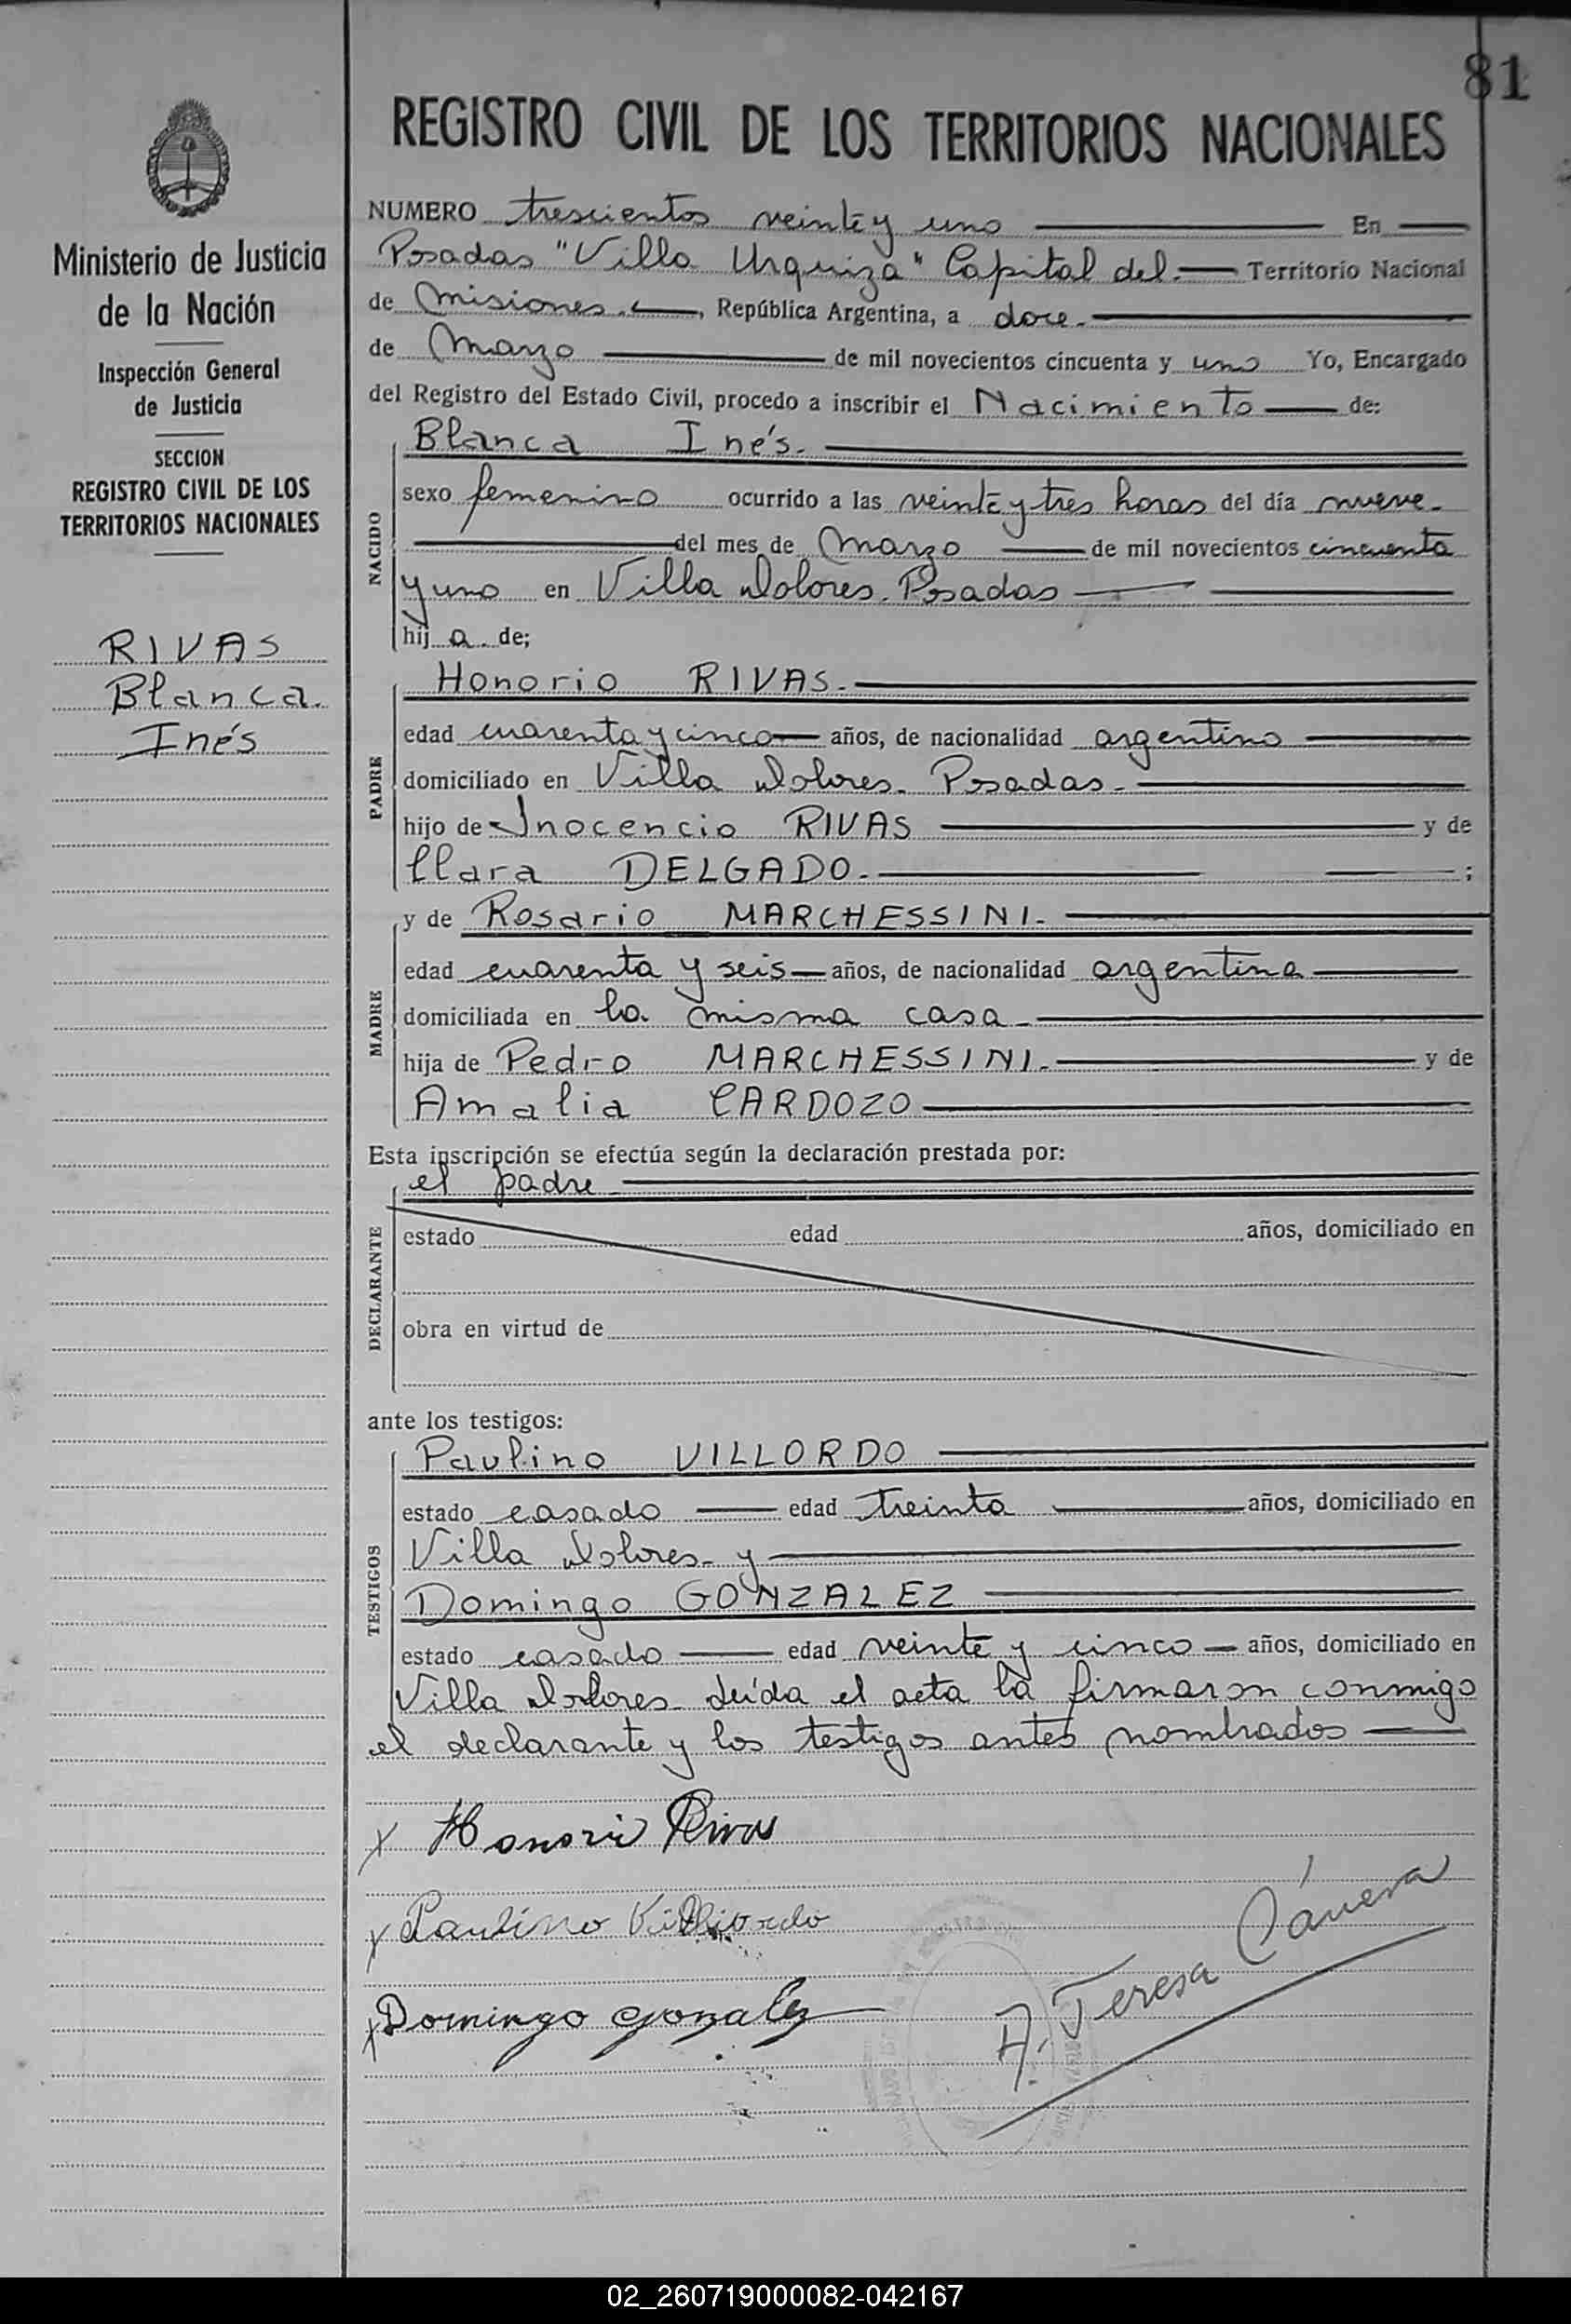 81
REGISTRO CIVIL DE LOS TERRITORIOS NACIONALES
Ministerio de Justicia
de la Nación
Inspección General
de Justicia
SECCION
REGISTRO CIVIL DE LOS
TERRITORIOS NACIONALES
RIVAS
Blanca.
Inés
NUMERO trescientos veinte y uno En
Posadas "Villa Urquiza" Capital del. Territorio Nacional
de Misiones., República Argentina, a doce.
de Marzo de mil novecientos cincuenta y uno Yo, Encargado
del Registro del Estado Civil, procedo a inscribir el Nacimiento de:
NACIDO
Blanca Inés.
sexo femenino ocurrido a las veinte y tres horas del día nueve.
del mes de Marzo de mil novecientos cincuenta
y uno en Villa Dolores. Posadas
hij a. de;
PADRE
Honorio RIVAS.
edad cuarenta y cinco años, de nacionalidad argentino
domiciliado en Villa Dolores. Posadas.
hijo de Inocencio RIVAS y de
Clara DELGADO. ;
MADRE
y de Rosario MARCHESSINI.
edad cuarenta y seis años, de nacionalidad argentina
domiciliada en la misma casa.
hija de Pedro MARCHESSINI. y de
Amalia CARDOZO
Esta inscripción se efectúa según la declaración prestada por:
DECLARANTE
el padre
estado edad años, domiciliado en
obra en virtud de
ante los testigos:
TESTIGOS
Paulino VILLORDO
estado casado edad treinta años, domiciliado en
Villa Dolores- y
Domingo GONZALEZ
estado casado edad veinte y cinco años, domiciliado en
Villa Dolores. Leída el acta la firmaron conmigo
el declarante y los testigos antes nombrados
x Honorio Rivas
x Paulino Villordo
x Domingo Gonzalez
A. Teresa Cánera
02_260719000082-042167